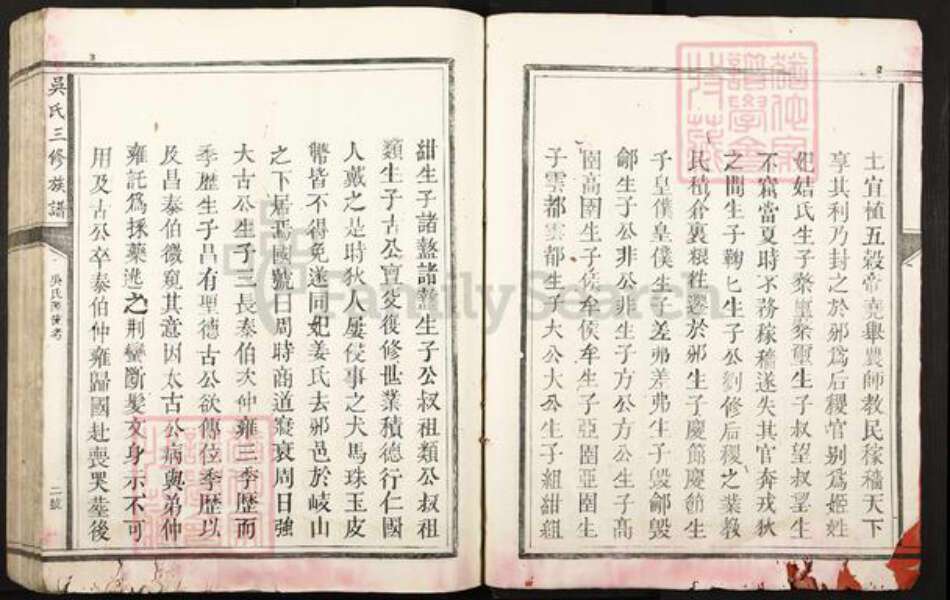 土宜植五穀帝堯舉農師教民稼穡天下
享其利乃封之於邠爲后稷官别爲姬姓
妃姞氏生子 生子叔望叔望生
不窋當夏時不務稼穡遂失其官奔戎狄
之間生子鞠匕生子公劉修后稷之業教
民積倉裹粮徃遷於邠生子慶節慶節生
子皇僕皇僕生子差弗差弗生子毀鄃毀
鄃生子公非公非生子方公方公生子高
圉高圉生子侯牟侯牟生子亞圉亞圉生
子雲都雲都生子大公大公生子組紺組
紺生子諸盩諸盩生子公叔祖類公叔祖
類生子古公亶父復修世業積德行仁國
人戴之是時狄人屢侵事之犬馬珠玉皮
幣皆不得免遂同妃姜氏去邠邑於岐山
之下居焉國號曰周時商道寖衰周日强
大古公生子三長泰伯次仲雍三季歷而
季歷生子昌有聖德古公欲傳位季歷以
及昌泰伯微窺其意因太古公病與弟仲
雍託爲採藥逃之荆蠻斷髮文身示不可
用及古公卒泰伯仲雍歸國赴喪哭塟後
吳氏三修族譜
吳氏 考
二號
FamilySearch